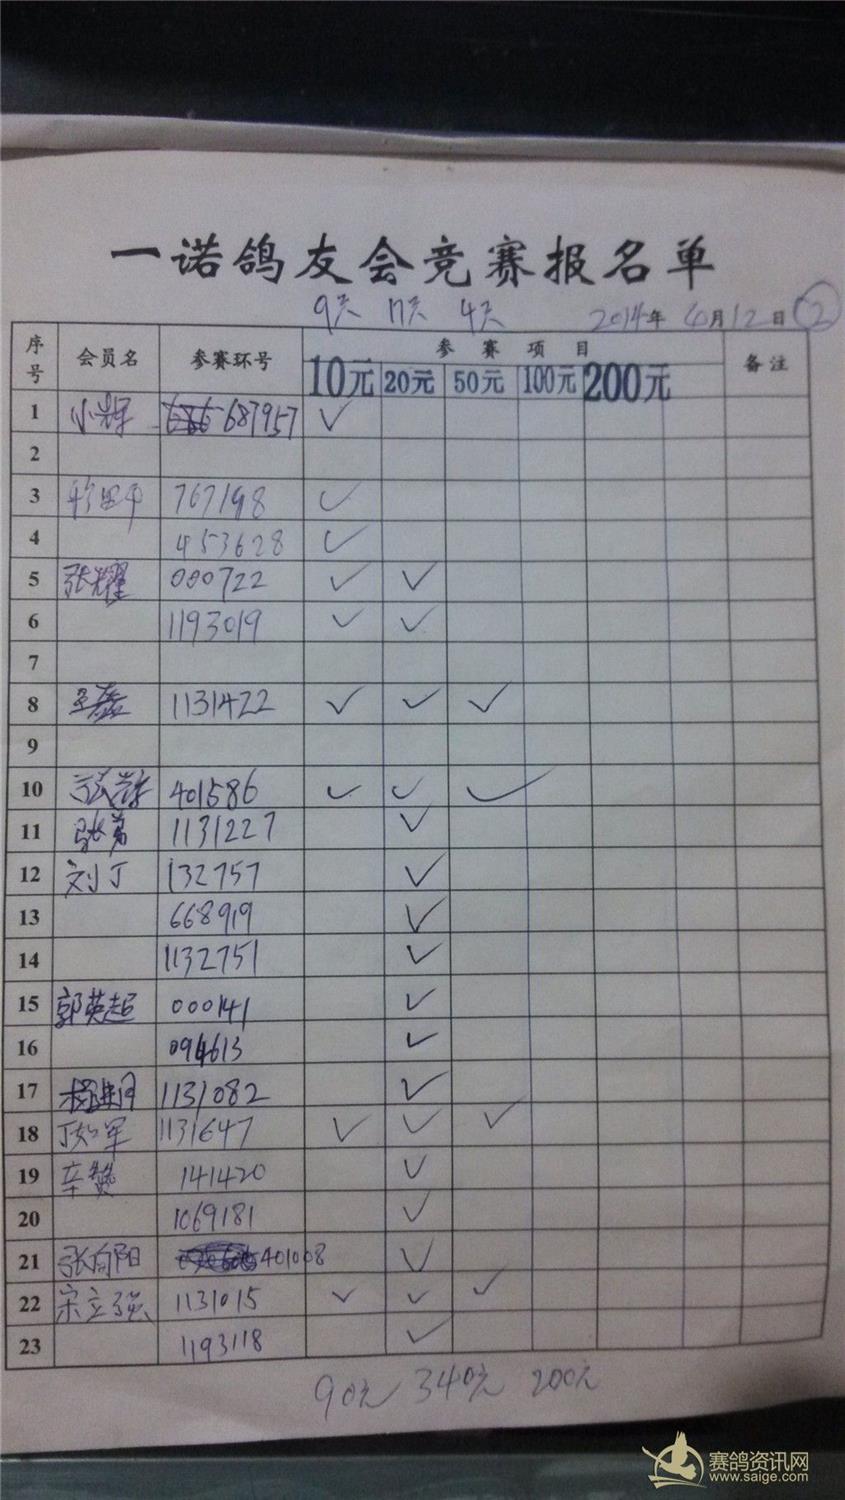 一诺鸽友会竞赛报名单
9天 17天 4天 2014年 4月12日 2
序号 会员名 参赛环号 参赛项目 备注
10元 20元 50元 100元 200元
1 小辉 687957 ✓
2
3 767198 ✓
4 453628 ✓
5 张耀 000722 ✓ ✓
6 1193019 ✓ ✓
7
8 1131422 ✓ ✓ ✓
9
10 401586 ✓ ✓ ✓
11 张勇 1131227 ✓
12 刘丁 132757 ✓
13 668919 ✓
14 1132751 ✓
15 郭英超 000141 ✓
16 094613 ✓
17 1131082 ✓
18 丁如军 1131647 ✓ ✓ ✓
19 辛赞 141420 ✓
20 1069181 ✓
21 张向阳 401008 ✓
22 宋立强 1131015 ✓ ✓ ✓
23 1193118 ✓
90元 340元 200元
赛鸽资讯网
www.saige.com